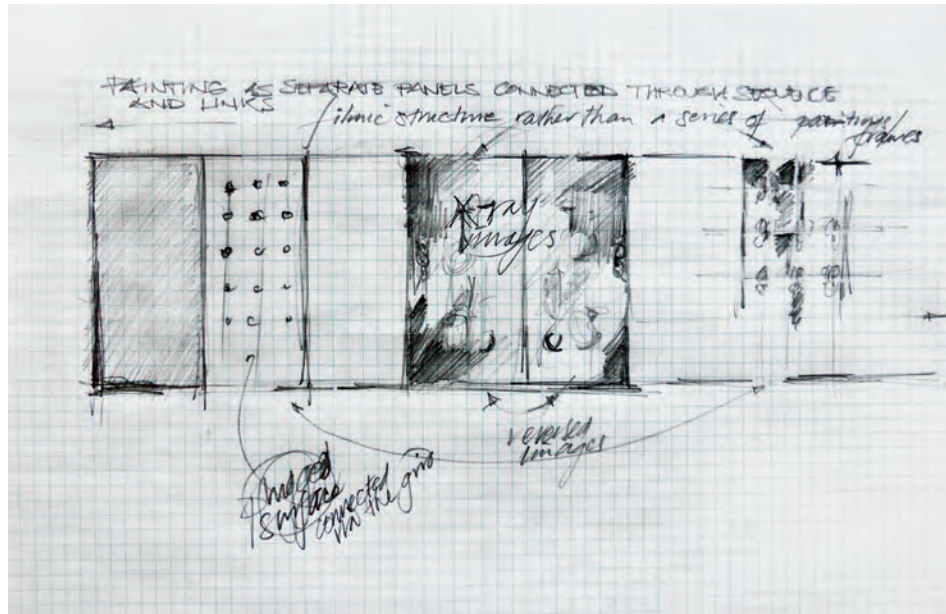 PAINTING AS SEPARATE PANELS CONNECTED THROUGH SEQUENCE
AND LINKS
filmic structure rather than a series of paintings/
frames
X-ray
images
reversed
images
surface
connected
via the grid